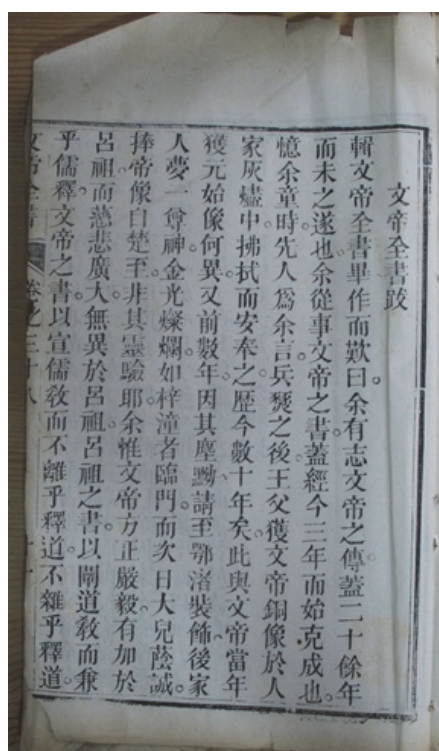 文帝全書跋
輯文帝全書畢作而歎曰。余有志文帝之傳蓋二十餘年
而未之遂也。余從事文帝之書。蓋經今三年而始克成也。
憶余童時。先人爲余言。兵燹之後。王父獲文帝銅像於人
家灰燼中。拂拭而安奉之。歷今數十年矣。此與文帝當年
獲元始像何異。又前數年。因其塵黝。請至鄂渚裝飾。後家
人夢一尊神。金光燦爛。如梓潼者臨門。而次日大兒蔭誠。
捧帝像自楚至。非其靈驗耶。余惟文帝方正嚴毅。有加於
呂祖。而慈悲廣大。無異於呂祖。呂祖之書。以闡道教而兼
乎儒釋。文帝之書。以宣儒教而不離乎釋道。不雜乎釋道。
文帝全書 卷之三十八